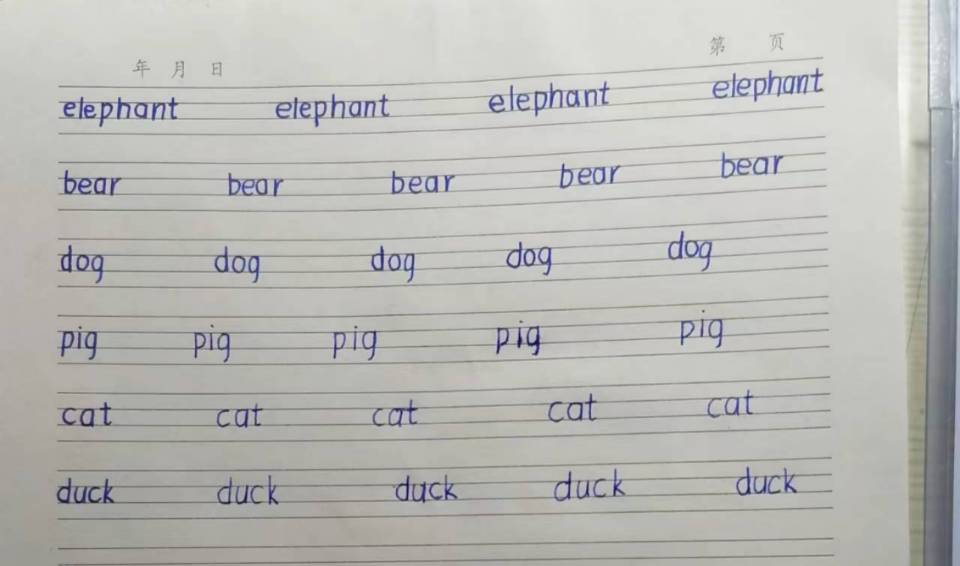 年 月 日 第 页
elephant elephant elephant elephant
bear bear bear bear bear
dog dog dog dog dog
pig pig pig pig pig
cat cat cat cat cat
duck duck duck duck duck